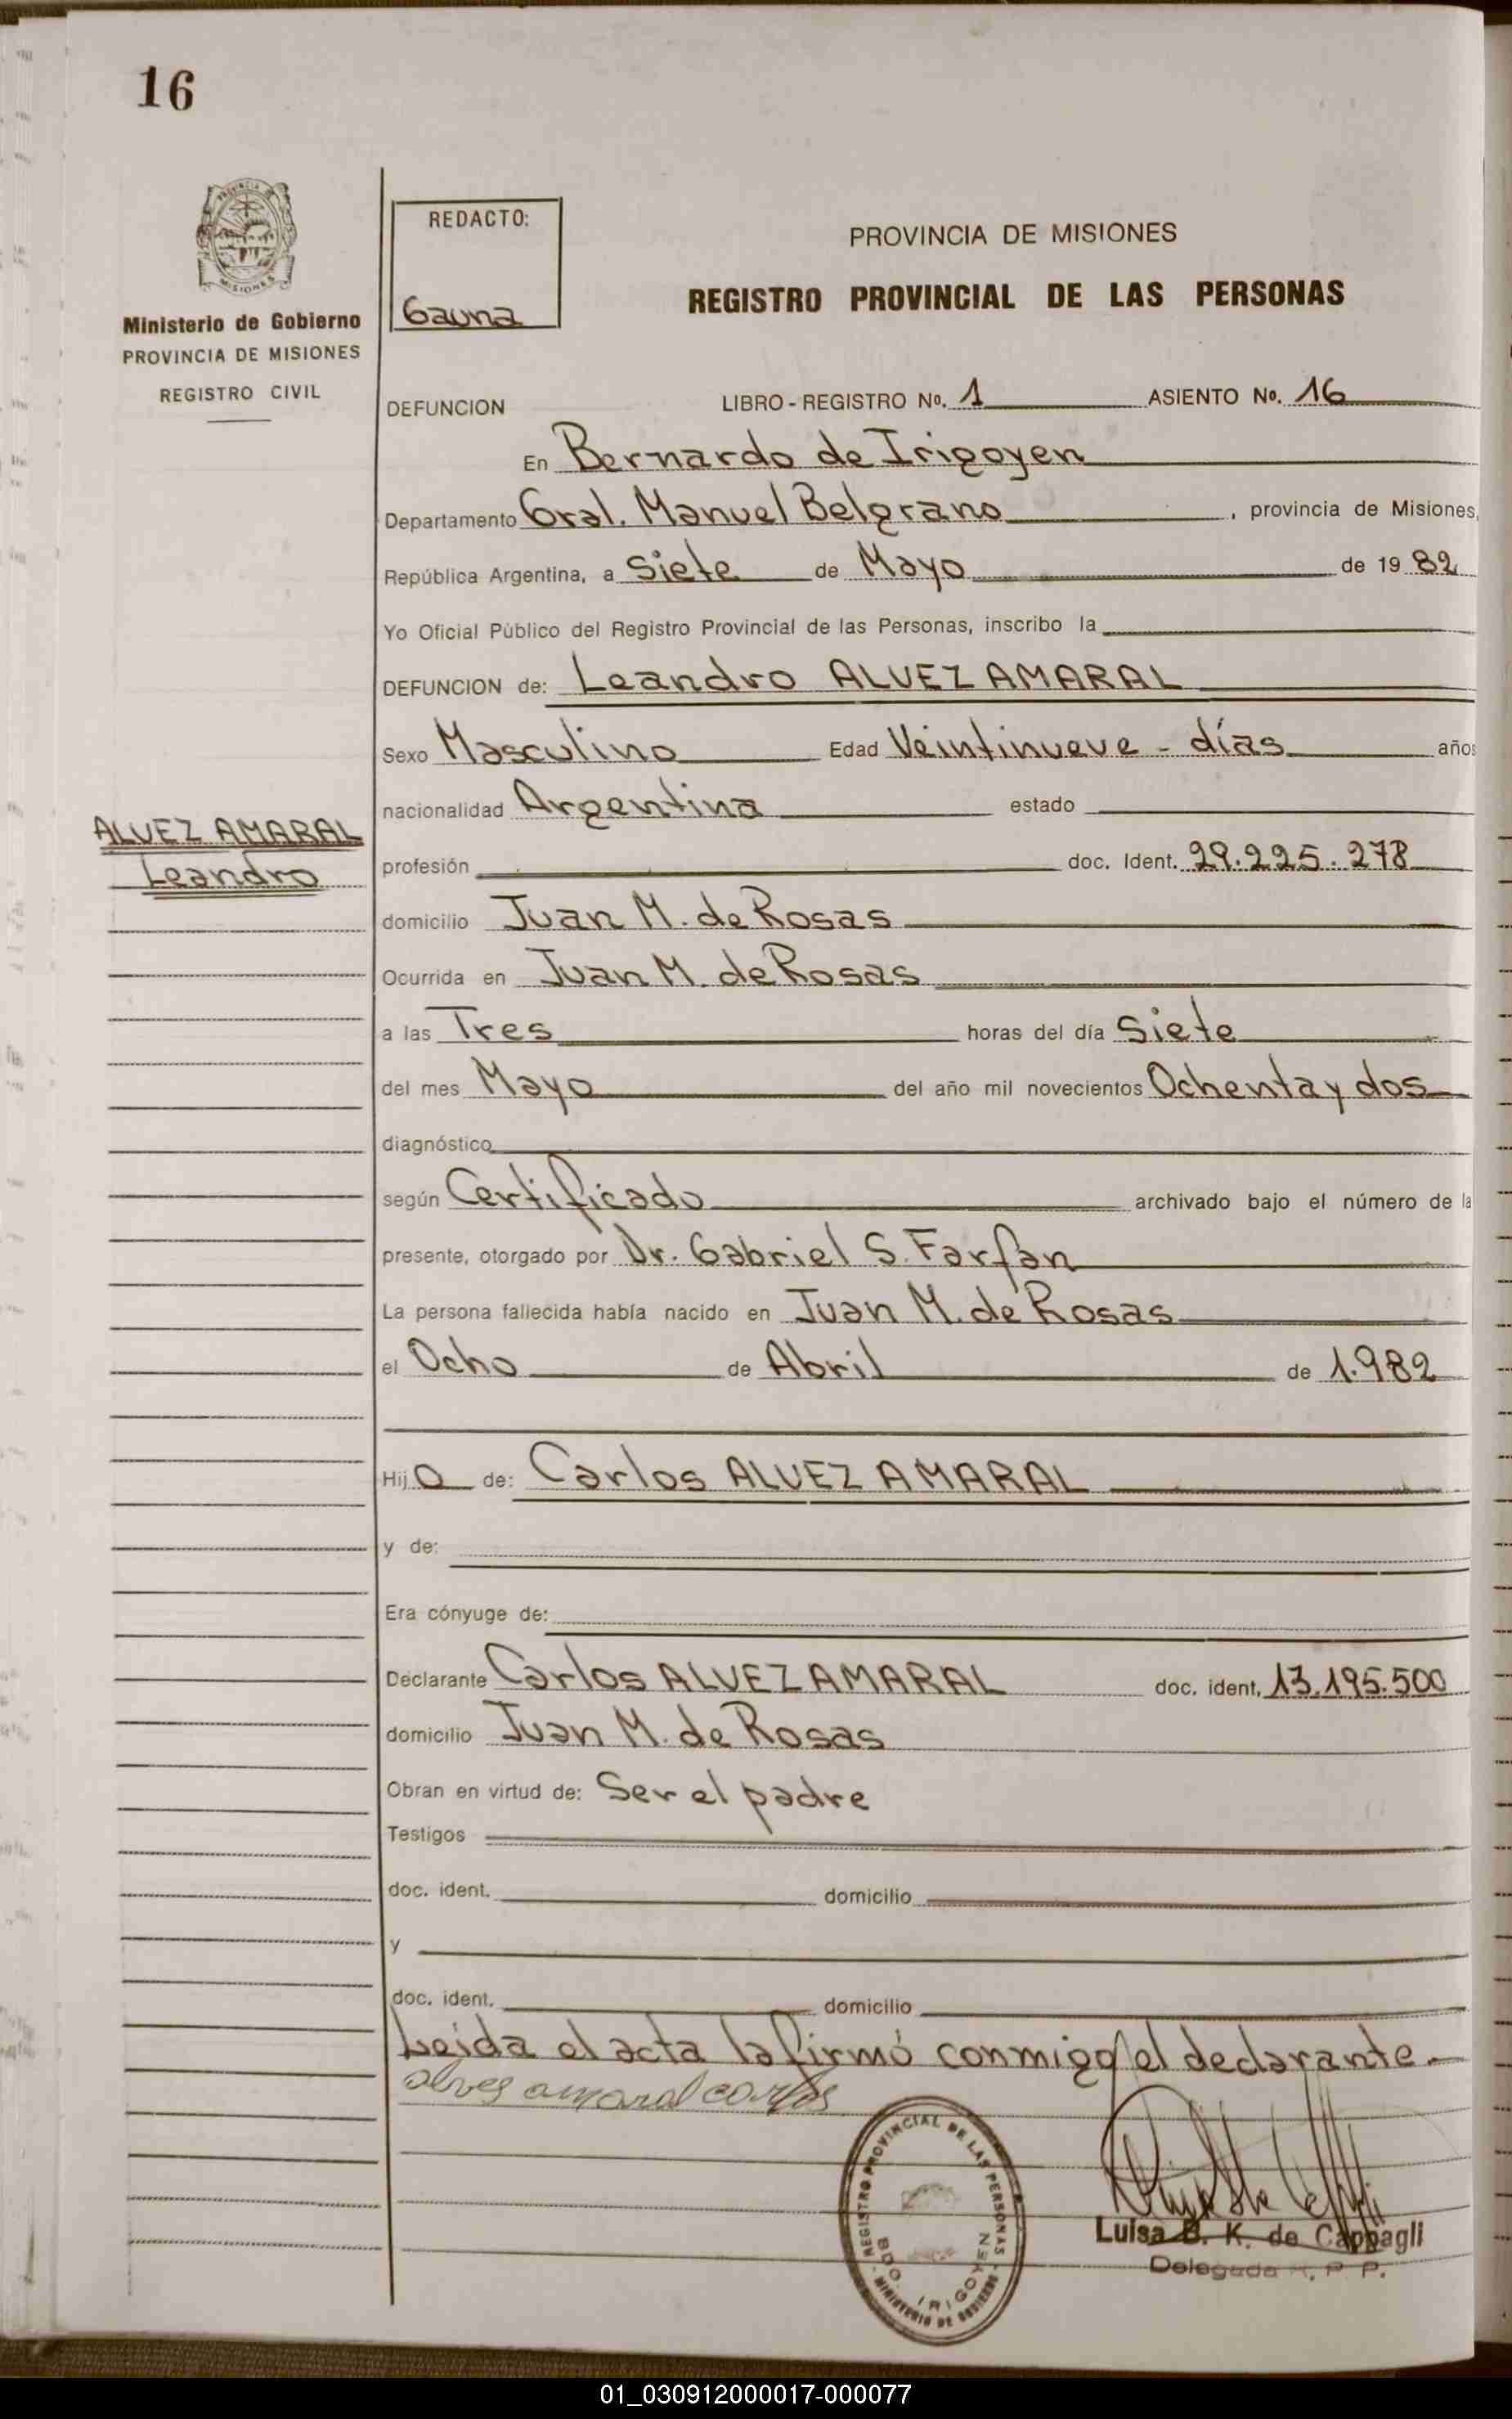 16
PROVINCIA DE
MISIONES
Ministerio de Gobierno
PROVINCIA DE MISIONES
REGISTRO CIVIL
ALVEZ AMARAL
Leandro
REDACTO:
Gauna
PROVINCIA DE MISIONES
REGISTRO PROVINCIAL DE LAS PERSONAS
DEFUNCION LIBRO-REGISTRO Nº. 1 ASIENTO Nº. 16
En Bernardo de Irigoyen
Departamento Gral. Manuel Belgrano, provincia de Misiones,
República Argentina, a Siete de Mayo de 19 82
Yo Oficial Público del Registro Provincial de las Personas, inscribo la
DEFUNCION de: Leandro ALVEZ AMARAL
Sexo Masculino Edad Veintinueve - días años
nacionalidad Argentina estado
profesión doc. Ident. 29.225.278
domicilio Juan M. de Rosas
Ocurrida en Juan M. de Rosas
a las Tres horas del día Siete
del mes Mayo del año mil novecientos Ochenta y dos
diagnóstico
según Certificado archivado bajo el número de la
presente, otorgado por Dr. Gabriel S. Farfan
La persona fallecida había nacido en Juan M. de Rosas
el Ocho de Abril de 1.982
Hijo de: Carlos ALVEZ AMARAL
y de:
Era cónyuge de:
Declarante Carlos ALVEZ AMARAL doc. ident. 13.195.500
domicilio Juan M. de Rosas
Obran en virtud de: Ser el padre
Testigos
doc. ident. domicilio
y
doc. ident. domicilio
Leida el acta la firmó conmigo el declarante.-
alves amaral carlos
REGISTRO PROVINCIAL DE LAS PERSONAS
BDO. IRIGOYEN
MINISTERIO DE GOBIERNO
Luisa B. K. de Cappagli
Delegada R. P. P.
01_030912000017-000077